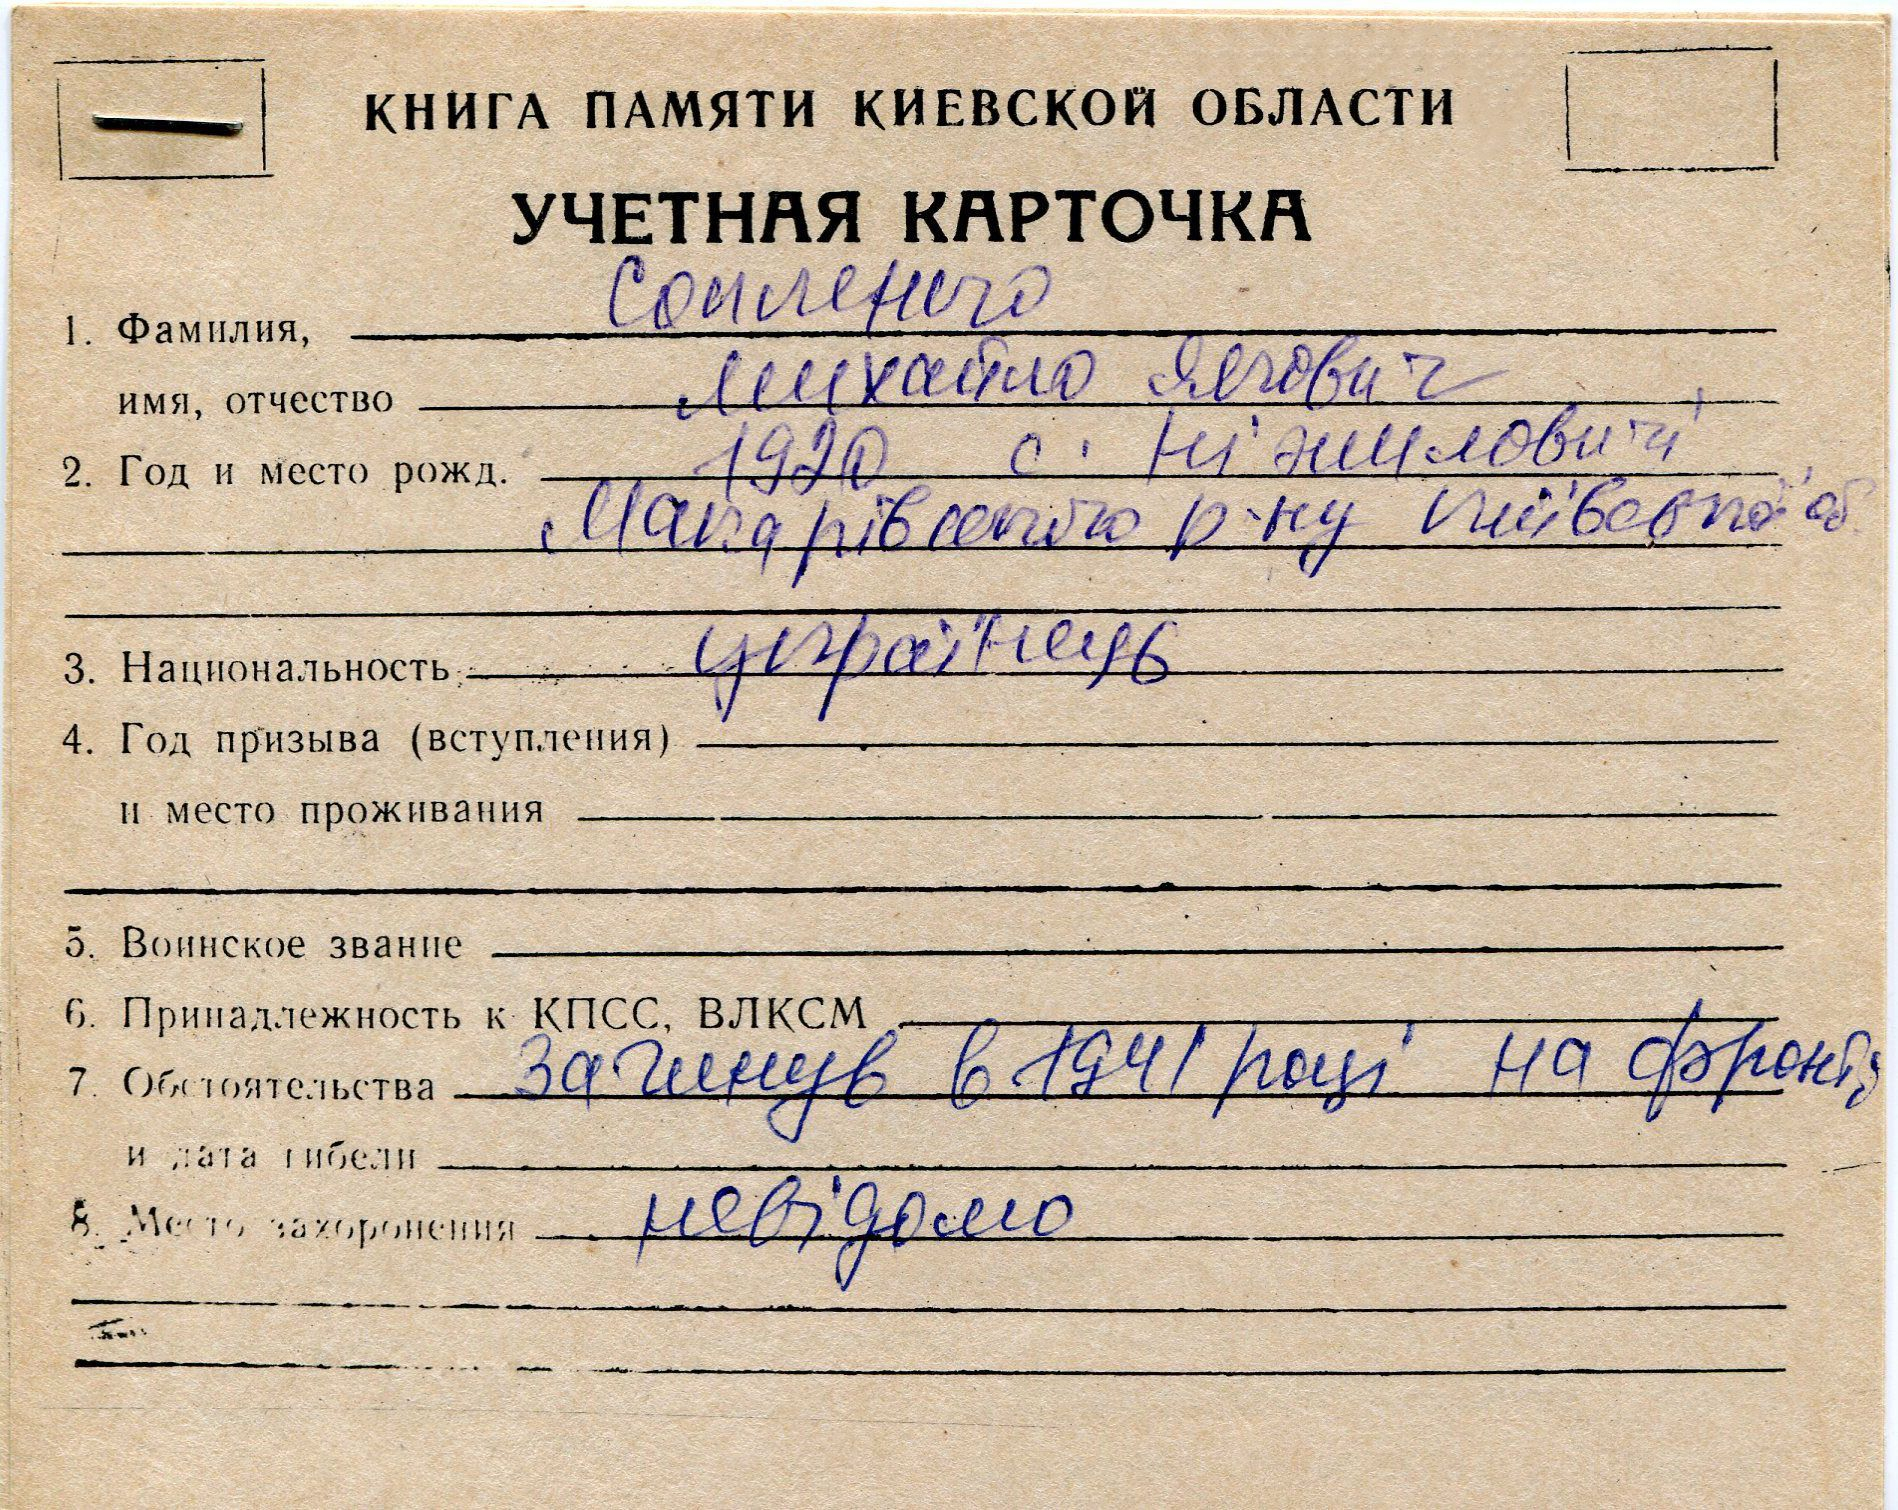 КНИГА ПАМЯТИ КИЕВСКОЙ ОБЛАСТИ
УЧЕТНАЯ КАРТОЧКА
1. Фамилия,
имя, отчество Михайло Якович
2. Год и место рожд. 1920 с. Ніжиловичі
Макарівського р-ну Київської об
3. Национальность українець
4. Год призыва (вступления)
и место проживания
5. Воинское звание
6. Принадлежность к КПСС, ВЛКСМ
7. Обстоятельства загинув в 1941 році на фронті
и дата гибели
8. Место захоронения невідомо